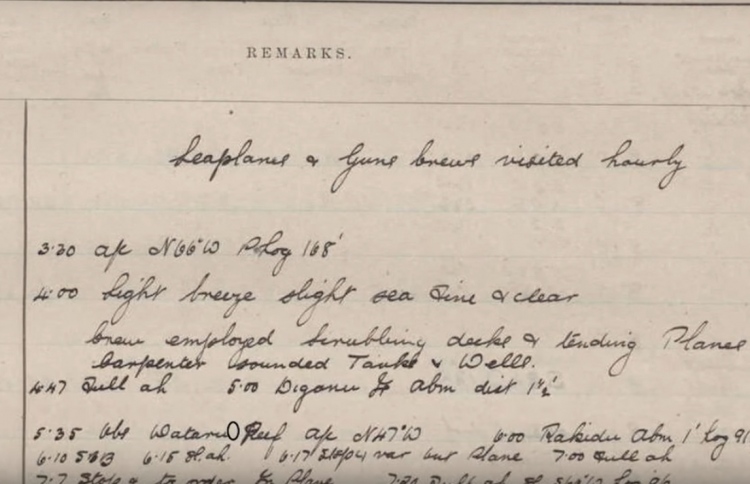 REMARKS.
Seaplanes & Guns Crews visited hourly
3·30 a/c N66°W P Log 168'
4·00 Light breeze slight sea Fine & clear
Crew employed Scrubbing decks & tending Planes
Carpenter sounded Tanks & Wells.
4·47 Full ah 5·00 Diganu Abm dist 1½'
5·35 Obs Wataru Reef a/c N47°W 6·00 Rakidu Abm 1' Log 91
6·10 6·15 H. ah. 6·17 Plane 7·00 Full ah
7·7 Stop to order Plane